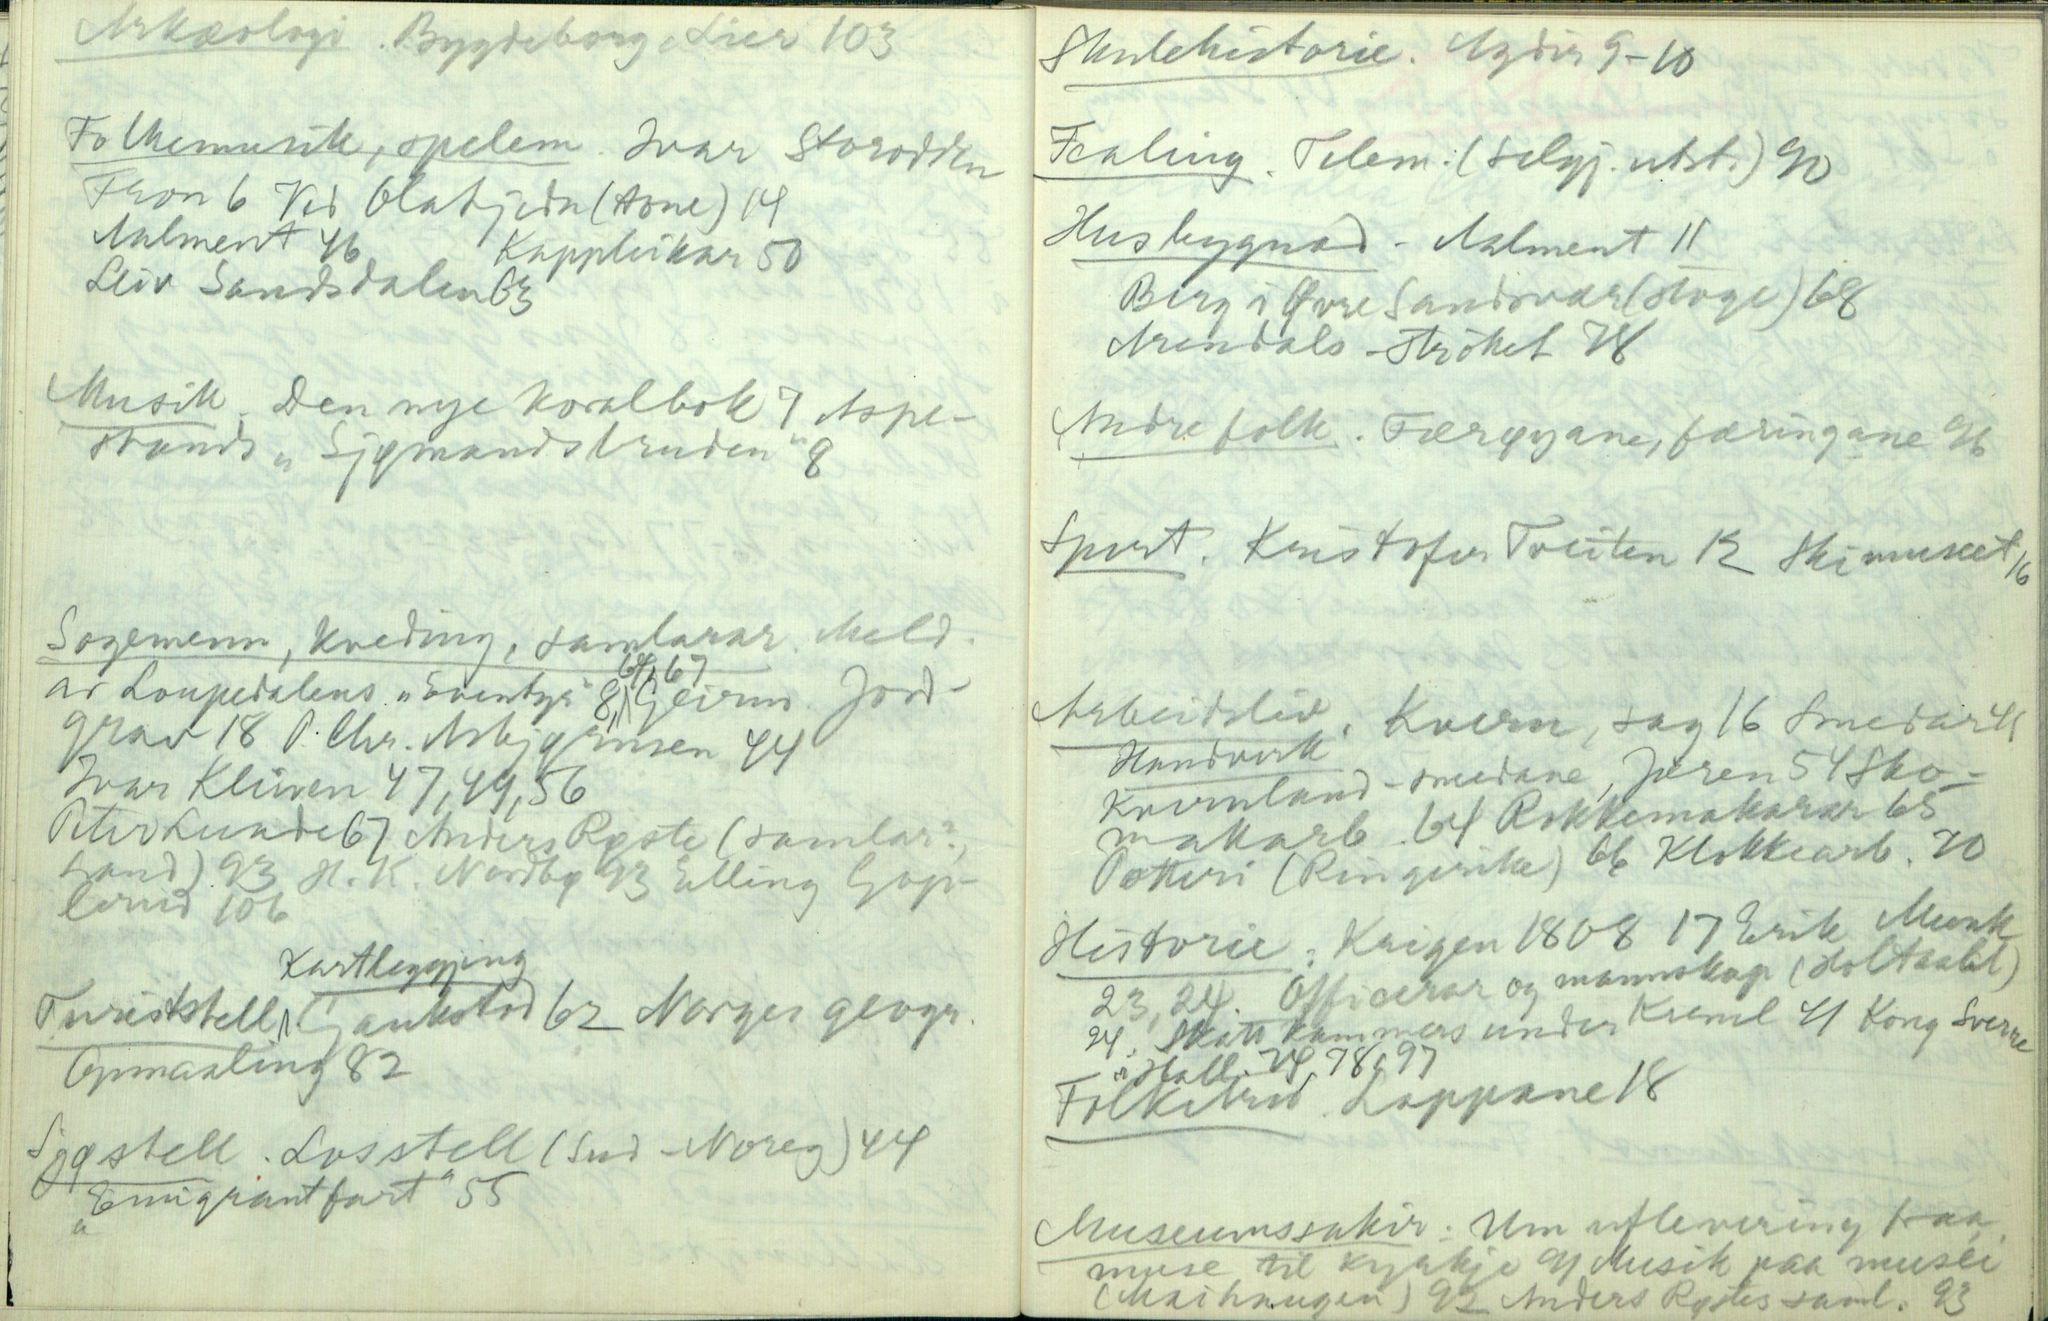 Arkæologi. Bygdeborg Lier 103
Folkemusik, spelem. Ivar Storodden
Fron 6 Ved Olatjedn (Aone) 14
Aalment 46 Kappleikar 50
Leiv Sandsdalen 63
Musik. Den nye koralbok 7 Aspe-
strands „Sjømandsbruden" 8
Sogemenn, kveding, samlarar. Meld.
av Loupedalens „Eventyr" 8, 64, 67 Geirm. Jord-
grav 18 P. Chr. Asbjørnsen 44
Ivar Kleiven 47, 49, 56
Peter Lunde 67 Anders Røste (samlar?,
Land) 93 H. K. Nordby 93 Elling Gop-
lerud 106
Kartleggjing
Turiststell, Gaukstad 62 Norges geogr.
Opmaaling 82
Sjøstell. Losstell (Sud-Noreg) 44
„Emigrantfart" 55
Skulehistorie. Agdir 9-10
Fealing. Telem. (selgj. utst.) 90
Husbygnad - Aalment 11
Berg i Øvre Sandsvær (stoge) 68
Arendals-strøket 78
Andre folk. Færøyane, færingane 96
Sport. Kristofer Tveiten 12 Skimuseet 16
Arbeidsliv. Kvern, sag 16 Smedar 41
Handverk
Kvernland-smedane, Jæren 54 Sko-
makarb. 64 Rokkemakarar 65
Potteri (Ringerike) 66 Klokkearb. 70
Historie: Krigen 1808 17 Erik Munk
23, 24. Officerar og mannskap (Holtaalel)
24. Skattkammers under Kreml 41 Kong Sverre
i Hall. 74, 78, 97
Folkebrud. Lappane 18
Museumssakir: Um utlevering fraa
muse til kyrkje 91 Musik paa musei
(Maihaugen) 92 Anders Røstes saml. 93